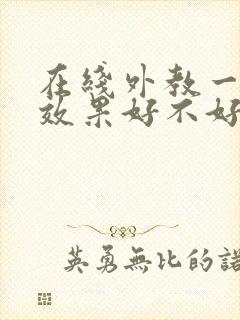 在线外教一
效果好不好
英勇無比的諾